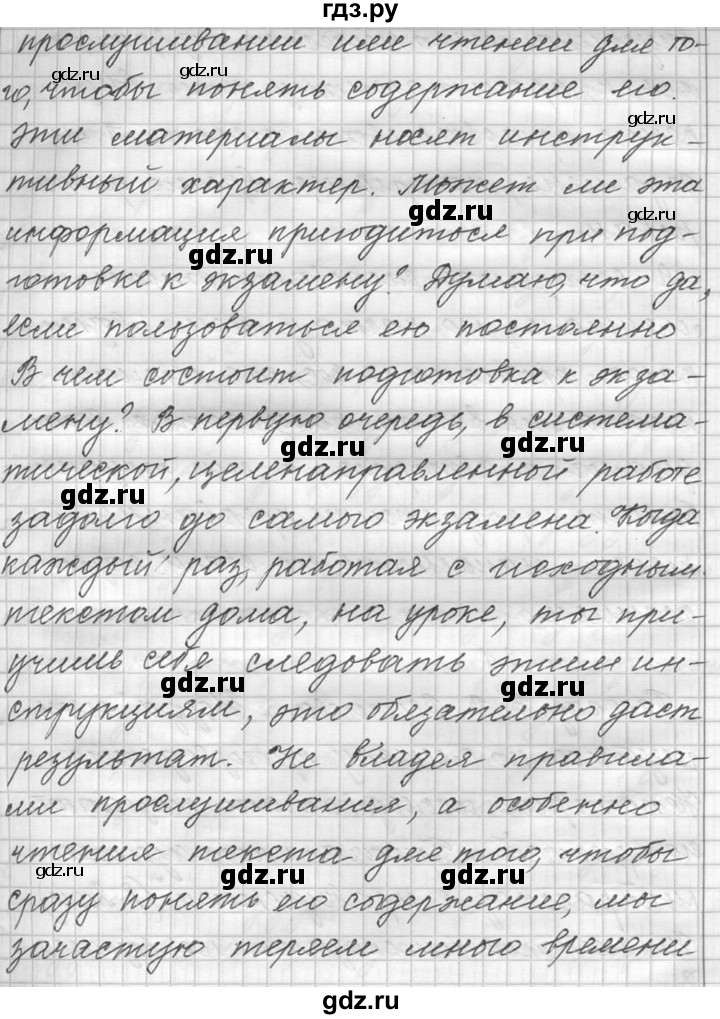 гдз.ру
прослушивании или чтении для то-
го, чтобы понять содержание его.
Эти материалы носят инструк-
тивный характер. Может ли эта
информация пригодиться при под-
готовке к экзамену? Думаю, что да,
если пользоваться ею постоянно
В чем состоит подготовка к экза-
мену? В первую очередь, в система-
тической, целенаправленной работе
задолго до самого экзамена. Когда
каждый раз, работая с исходным
текстом дома, на уроке, ты при-
учишь себя следовать этим ин-
струкциям, это обязательно даст
результат. Не владея правила-
ми прослушивания, а особенно
чтения текста для того, чтобы
сразу понять его содержание, мы
зачастую теряем много времени
gdz.ru